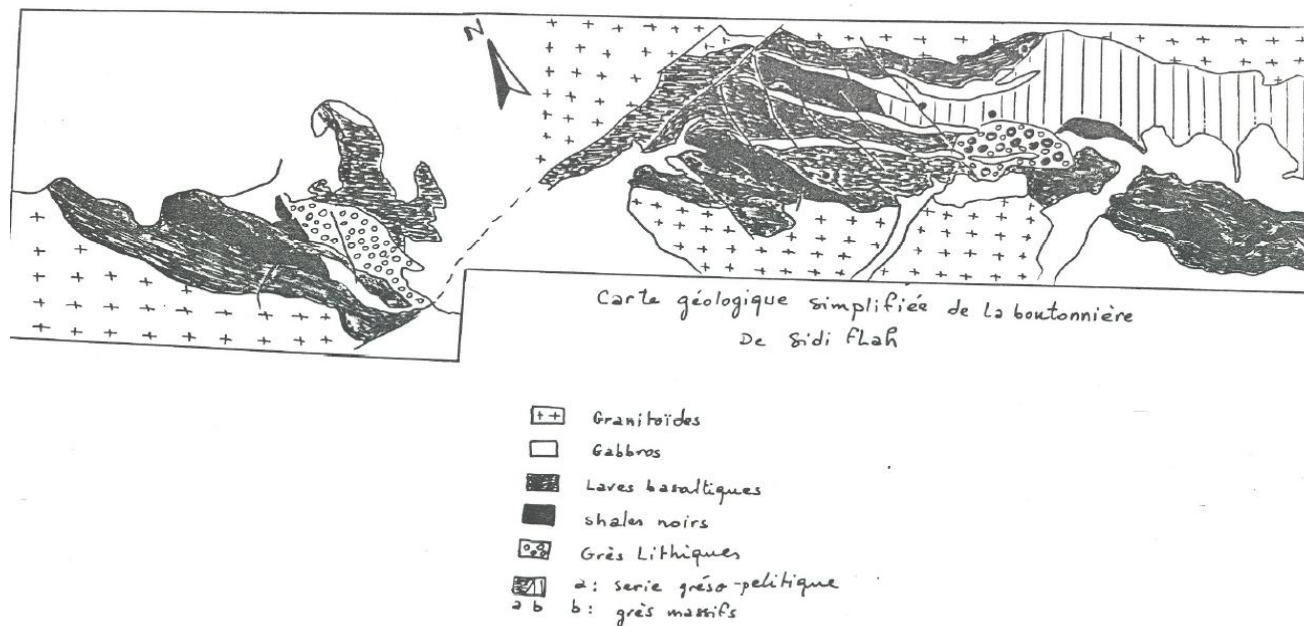 N
Carte géologique simplifiée de la boutonnière
De Sidi fLah
Granitoïdes
Gabbros
Laves basaltiques
shales noirs
Grès Lithiques
a: serie gréso-pelitique
a b b: grès massifs